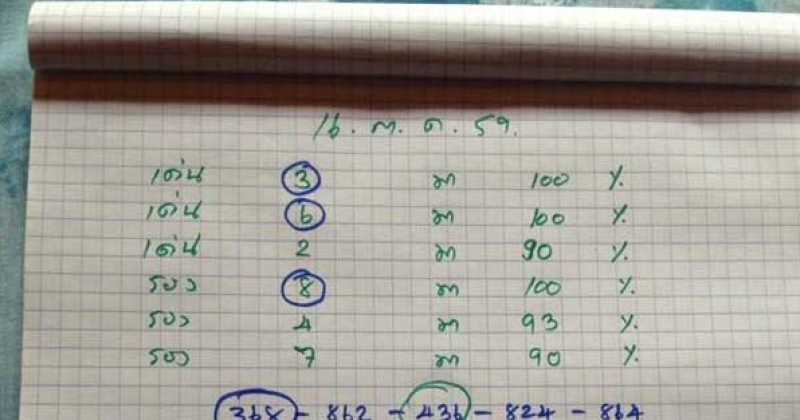 16. ต. ค. 59.
เด่น 3 มา 100 %
เด่น 6 มา 100 %
เด่น 2 มา 90 %
รอง 8 มา 100 %
รอง 4 มา 93 %
รอง 7 มา 90 %
368 - 862 - 436 - 824 - 864